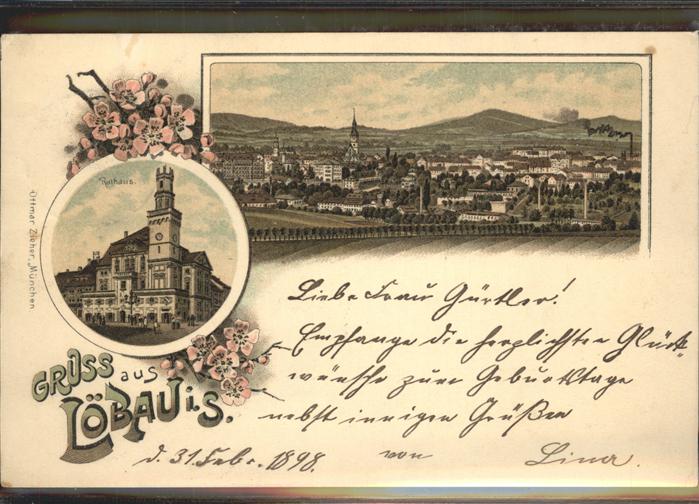 Rathaus.
Ottmar Zieher, München
Liebe Frau Gürtler!
Empfange die herzlichsten Glück-
wünsche zum Geburtstage
nebst innigen Grüßen
von Lina.
GRUSS aus
LÖBAU i. S.
d. 31. Febr. 1898.